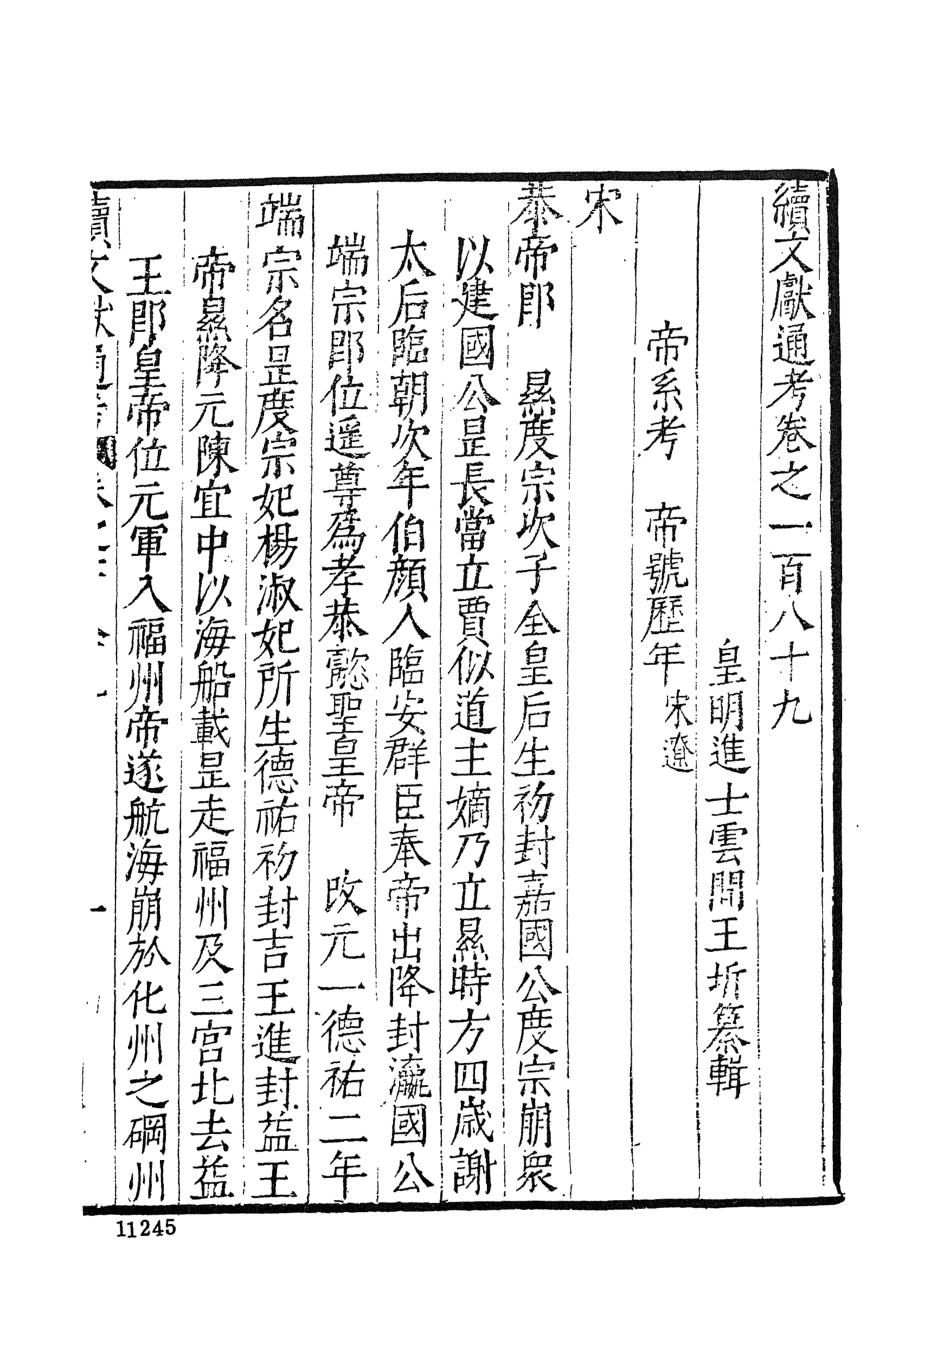 續文獻通考卷之一百八十九
皇明進士雲間王圻纂輯
帝系考　帝號歷年宋遼
宋
恭帝卽　㬎度宗次子全皇后生初封嘉國公度宗崩衆
以建國公昰長當立賈似道主嫡乃立㬎時方四歲謝
太后臨朝次年伯顏入臨安群臣奉帝出降封瀛國公
端宗卽位遥尊爲孝恭懿聖皇帝　改元一德祐二年
端宗名昰度宗妃楊淑妃所生德祐初封吉王進封益王
帝㬎降元陳宜中以海船載昰走福州及三宮北去益
王卽皇帝位元軍入福州帝遂航海崩於化州之碙州
續文獻通考
一
11245